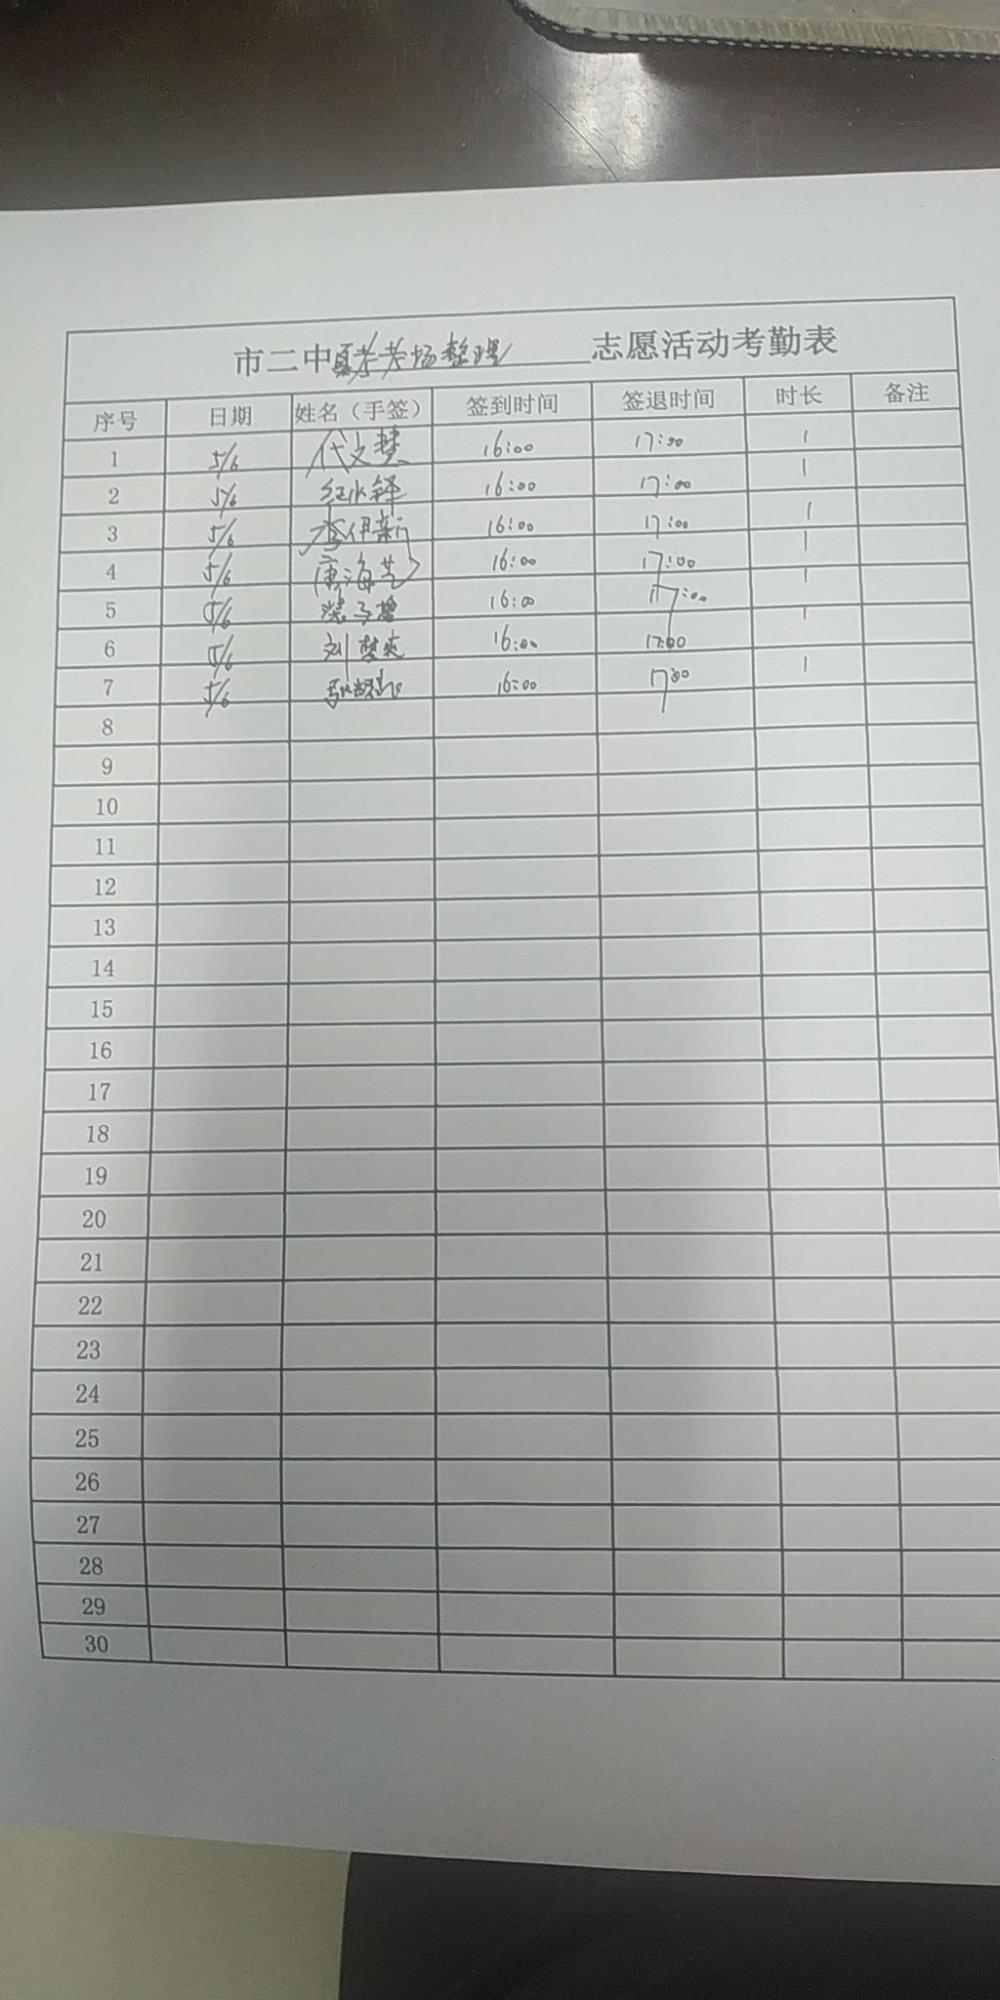 市二中夏考考场整理志愿活动考勤表
序号 日期 姓名（手签） 签到时间 签退时间 时长 备注
1 5/6 代文慧 16:00 17:00 1
2 5/6 16:00 17:00 1
3 5/6 李伊新 16:00 17:00 1
4 5/6 唐海芝 16:00 17:00 1
5 5/6 梁子 16:00 17:00 1
6 5/6 刘梦 16:00 17:00 1
7 5/6 16:00 17:00 1
8
9
10
11
12
13
14
15
16
17
18
19
20
21
22
23
24
25
26
27
28
29
30